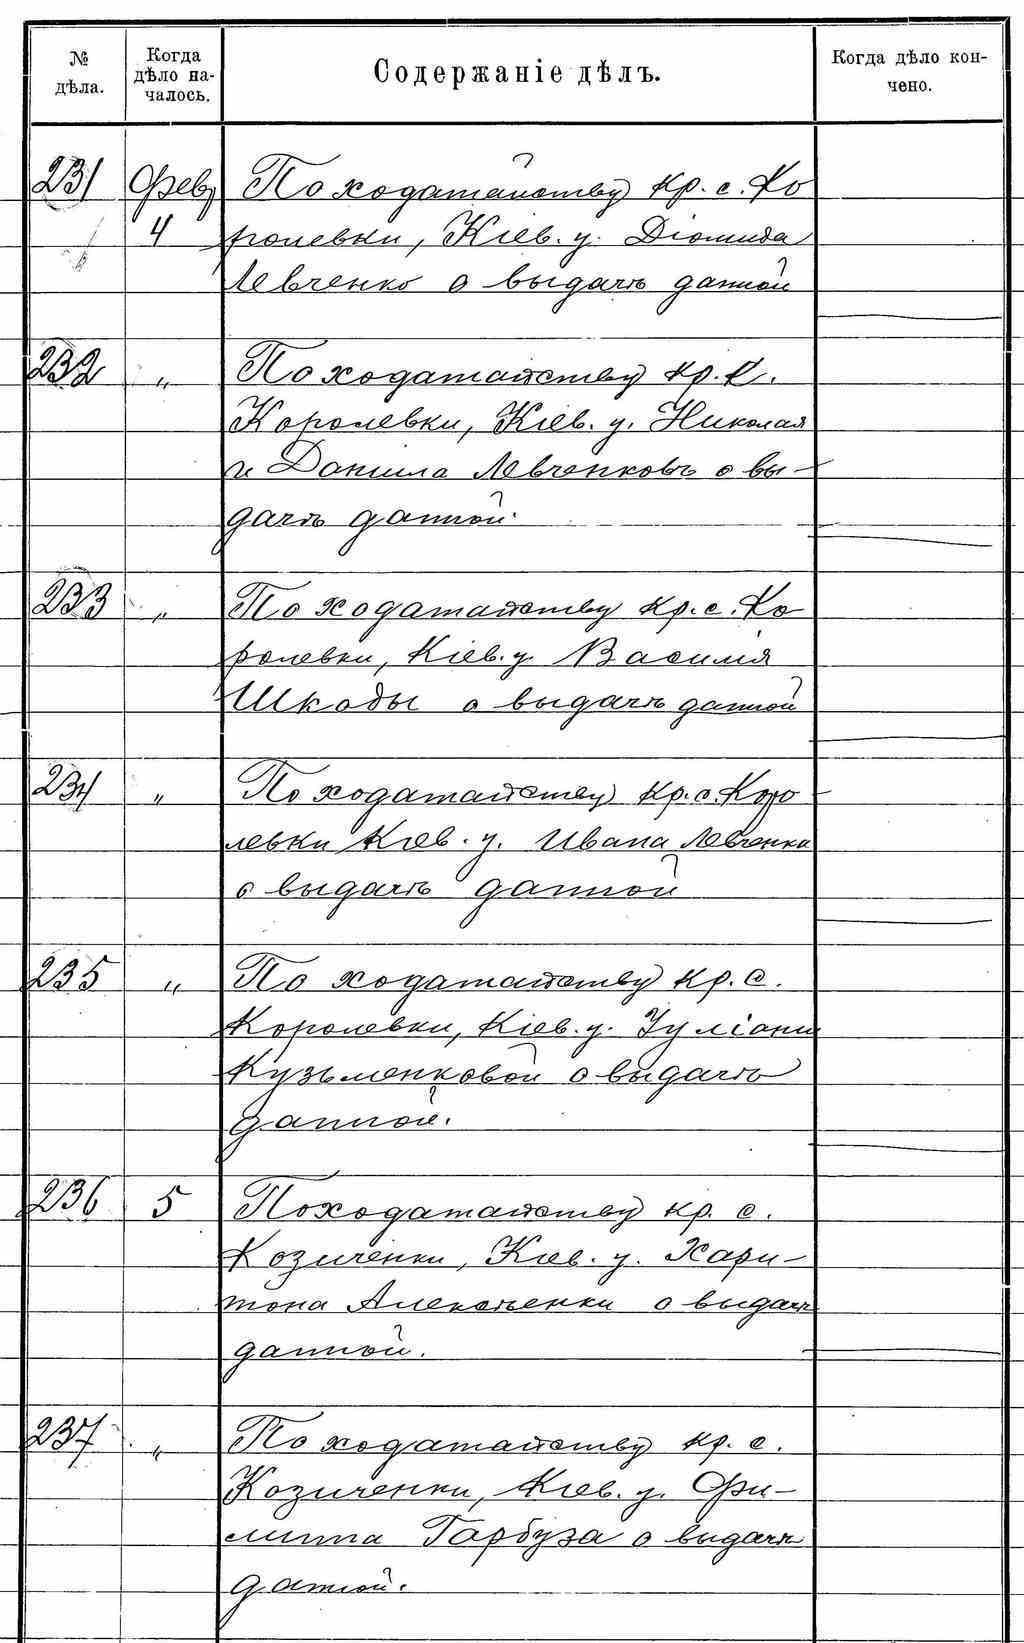 № дѣла.
Когда дѣло на-
чалось.
Содержаніе дѣлъ.
Когда дѣло кон-
чено.
231 Фев. По ходатайству кр. с. Ко
4 ролевки, Кіев. у. Діомида
Левченко о выдачѣ данной
232 " По ходатайству кр. с.
Королевки, Кіев. у. Николая
и Данила Левченковъ о вы-
дачѣ данной.
233 " По ходатайству кр. с. Ко
ролевки, Кіев. у. Василія
Шкоды о выдачѣ данной
234 " По ходатайству кр. с. Коро-
левки Кіев. у. Ивана Левченка
о выдачѣ данной
235 " По ходатайству кр. с.
Королевки, Кіев. у. Іуліаны
Кузьменковой о выдачѣ
данной.
236 5 По ходатайству кр. с.
Козиченки, Кіев. у. Хари-
тона Алексѣенки о выдачѣ
данной.
237 " По ходатайству кр. с.
Козиченки, Кіев. у. Фи-
липпа Гарбуза о выдачѣ
данной.